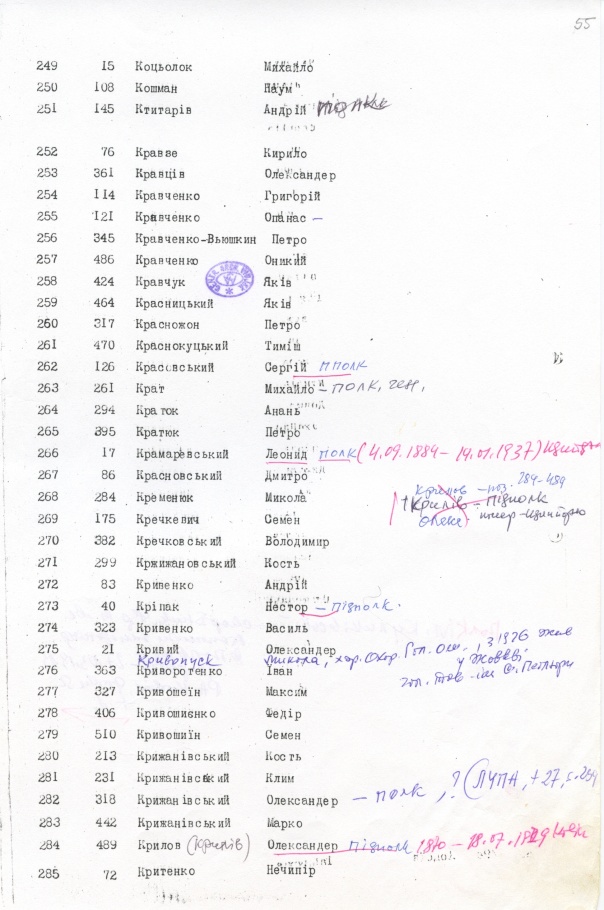 55
249 15 Коцьолок Михайло
250 108 Кошман Наум
251 145 Ктитарів Андрій
252 76 Кравзе Кирило
253 361 Кравців Олександер
254 114 Кравченко Григорій
255 121 Кравченко Опанас –
256 345 Кравченко-Вьюшкин Петро
257 486 Кравченко Оникий
258 424 Кравчук Яків
259 464 Красницький Яків
260 317 Красножон Петро
261 470 Краснокуцький Тиміш
262 126 Красовський Сергій пполк
263 261 Крат Михайло – полк, ген,
264 294 Краток Анань
265 395 Кратюк Петро
266 17 Крамаревський Леонид полк (4.09.1884 – 14.01.1937)
267 86 Красновський Дмитро
268 284 Кременюк Микола
Крилів – підполк
269 175 Кречкевич Семен
270 382 Кречковський Володимир
271 299 Кржижановський Кость
272 83 Кривенко Андрій
273 40 Кріпак Нестор – підполк.
274 323 Кривенко Василь
275 21 Кривий Олександер
Кривопуск Микола, хор. Охор. Гол. От., з 1926
276 363 Криворотенко Іван
277 327 Кривошеїн Максим
278 406 Кривошиєнко Федір
279 510 Кривошиїн Семен
280 213 Крижанівський Кость
281 231 Крижанівський Клим
282 318 Крижанівський Олександер – полк, ?
283 442 Крижанівський Марко
284 489 Крилов (Крилів) Олександер підполк
285 72 Критенко Нечипір